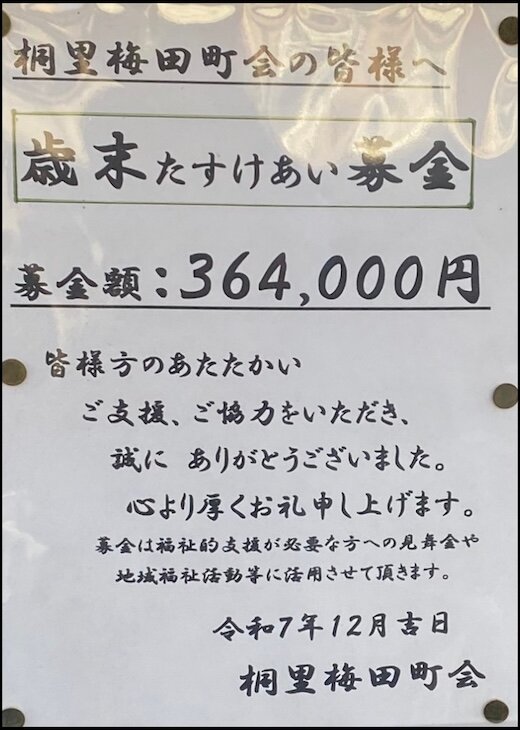 桐里梅田町会の皆様へ
歳末たすけあい募金
募金額：364,000円
皆様方のあたたかい
ご支援、ご協力をいただき、
誠に ありがとうございました。
心より厚くお礼申し上げます。
募金は福祉的支援が必要な方への見舞金や
地域福祉活動等に活用させて頂きます。
令和7年12月吉日
桐里梅田町会